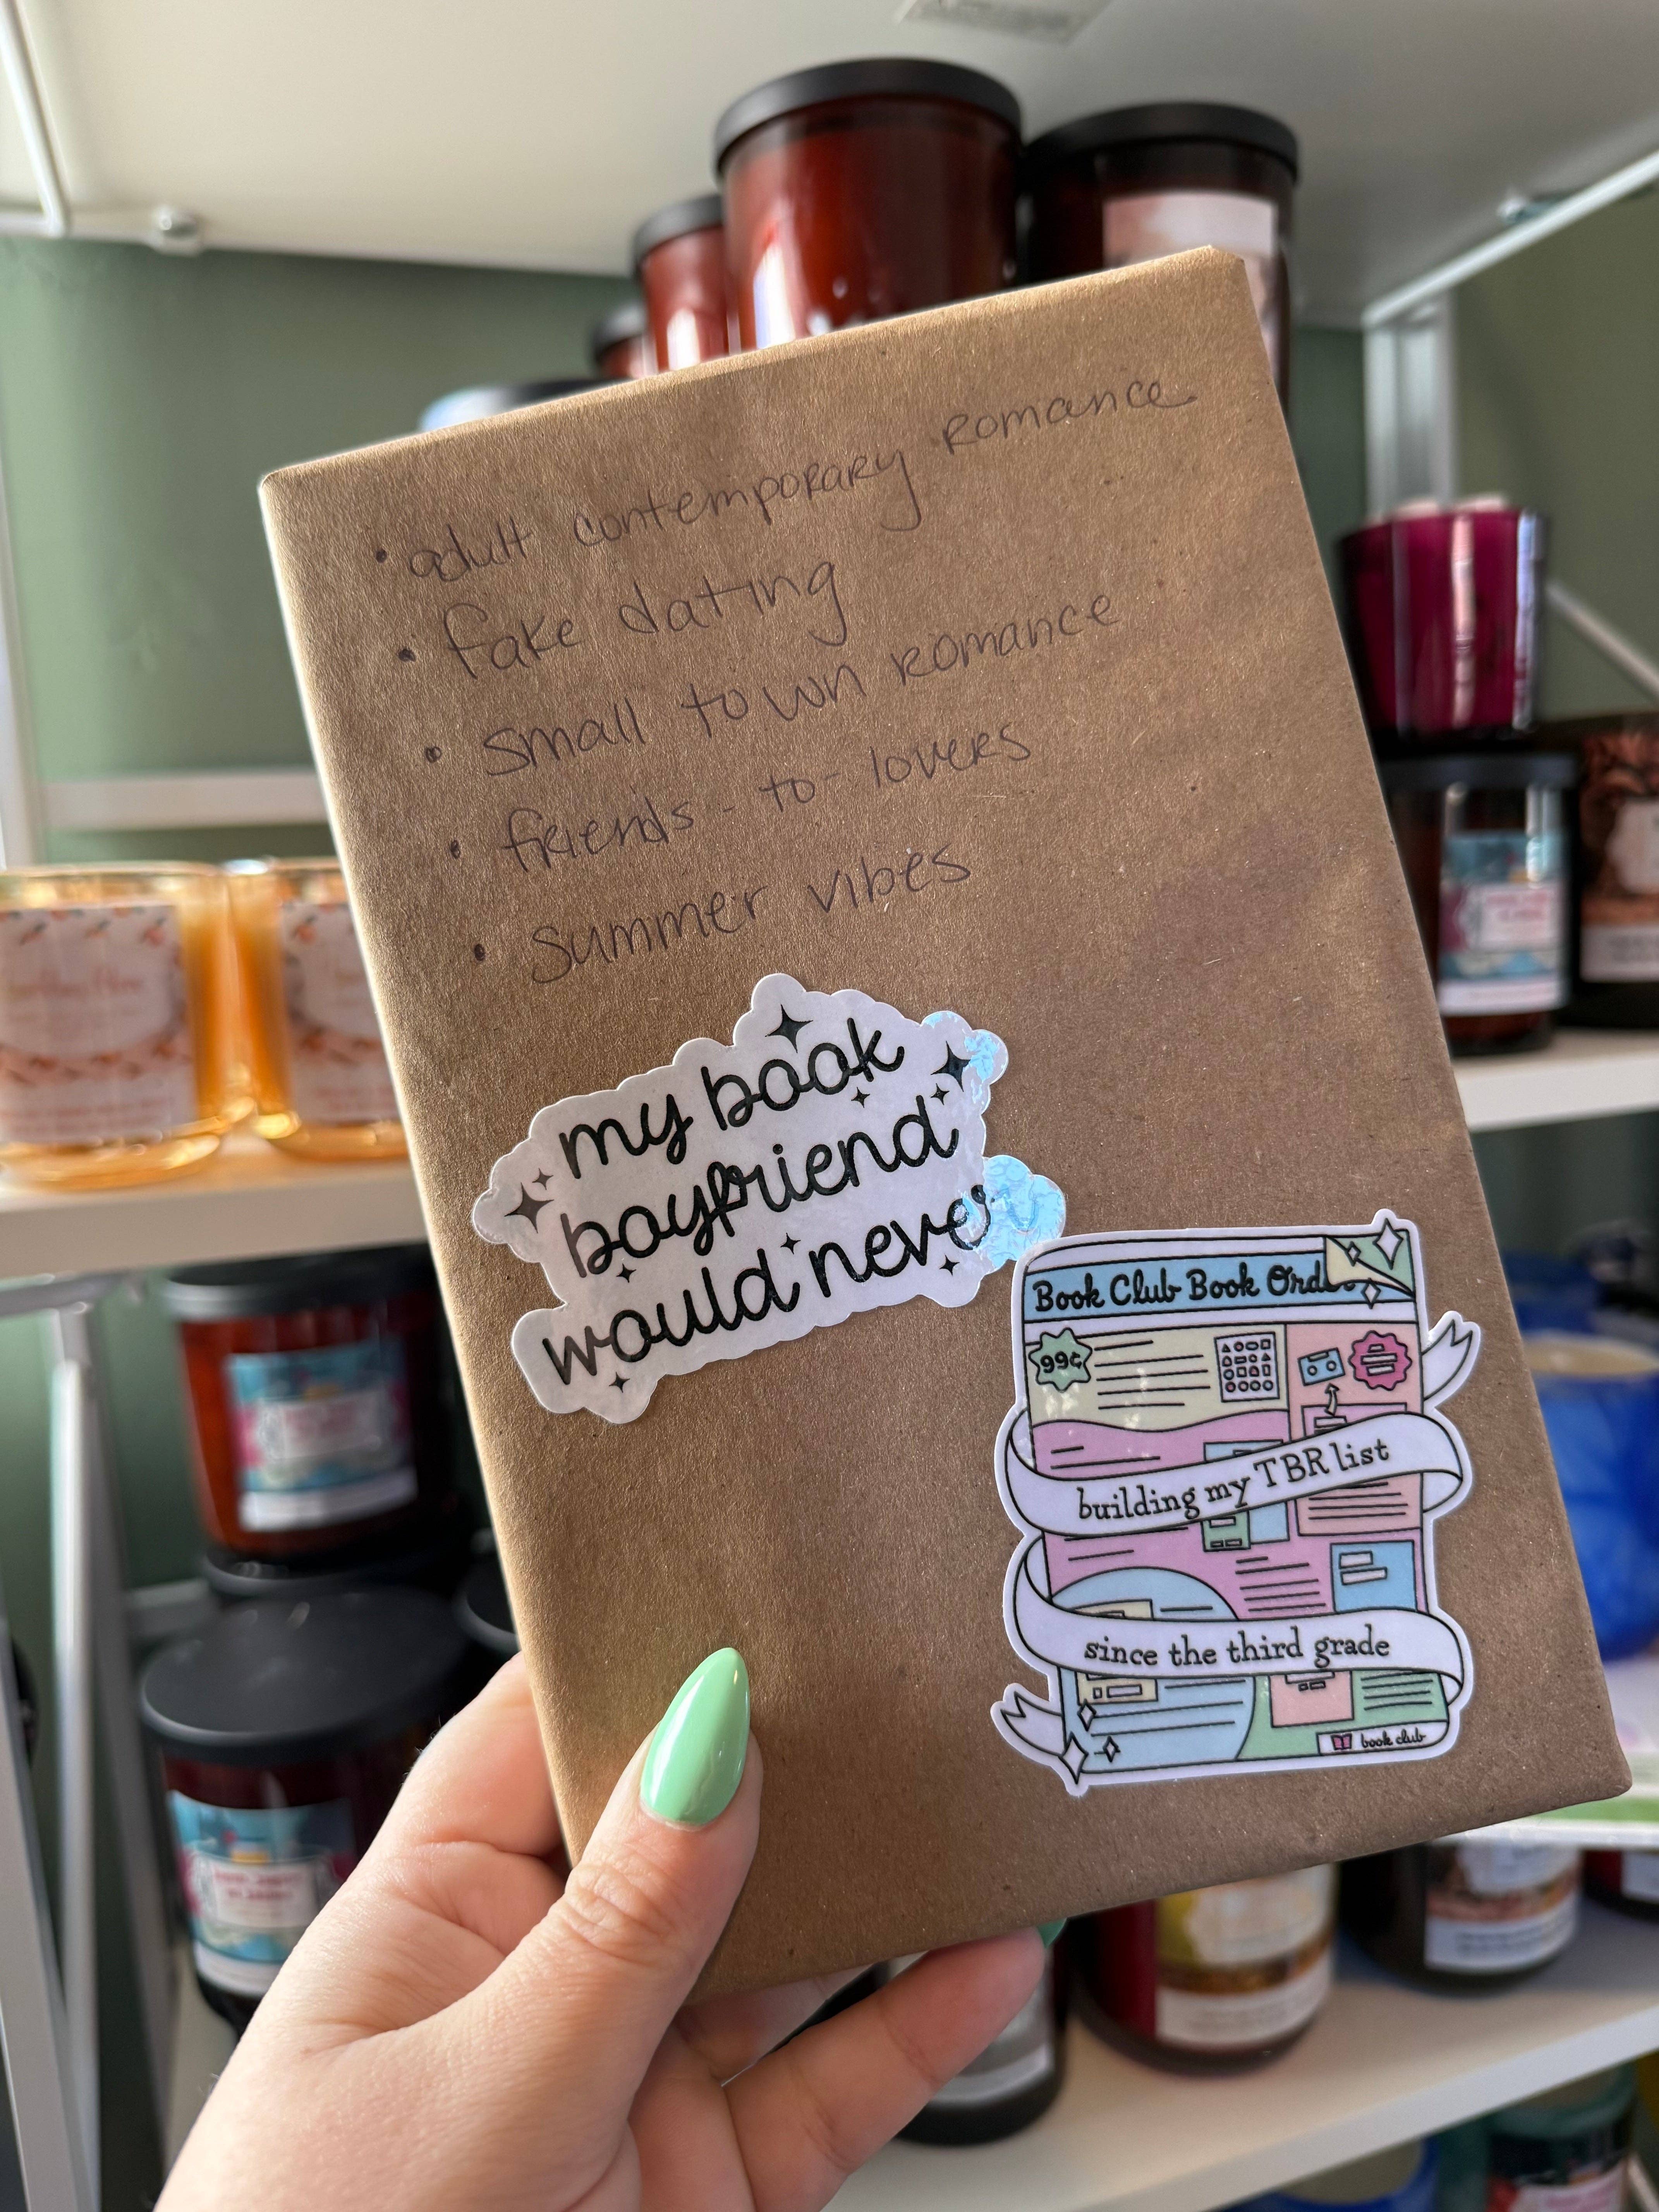 • adult contemporary romance
• fake dating
• small town romance
• friends-to-lovers
• summer vibes
my book
boyfriend
would never
Book Club Book Order
99¢
building my TBR list
since the third grade
book club